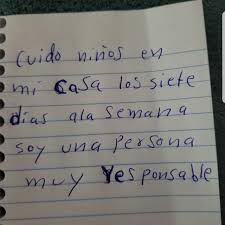 Cuido niños en
mi casa los siete
dias ala semana
soy una persona
muy responsable